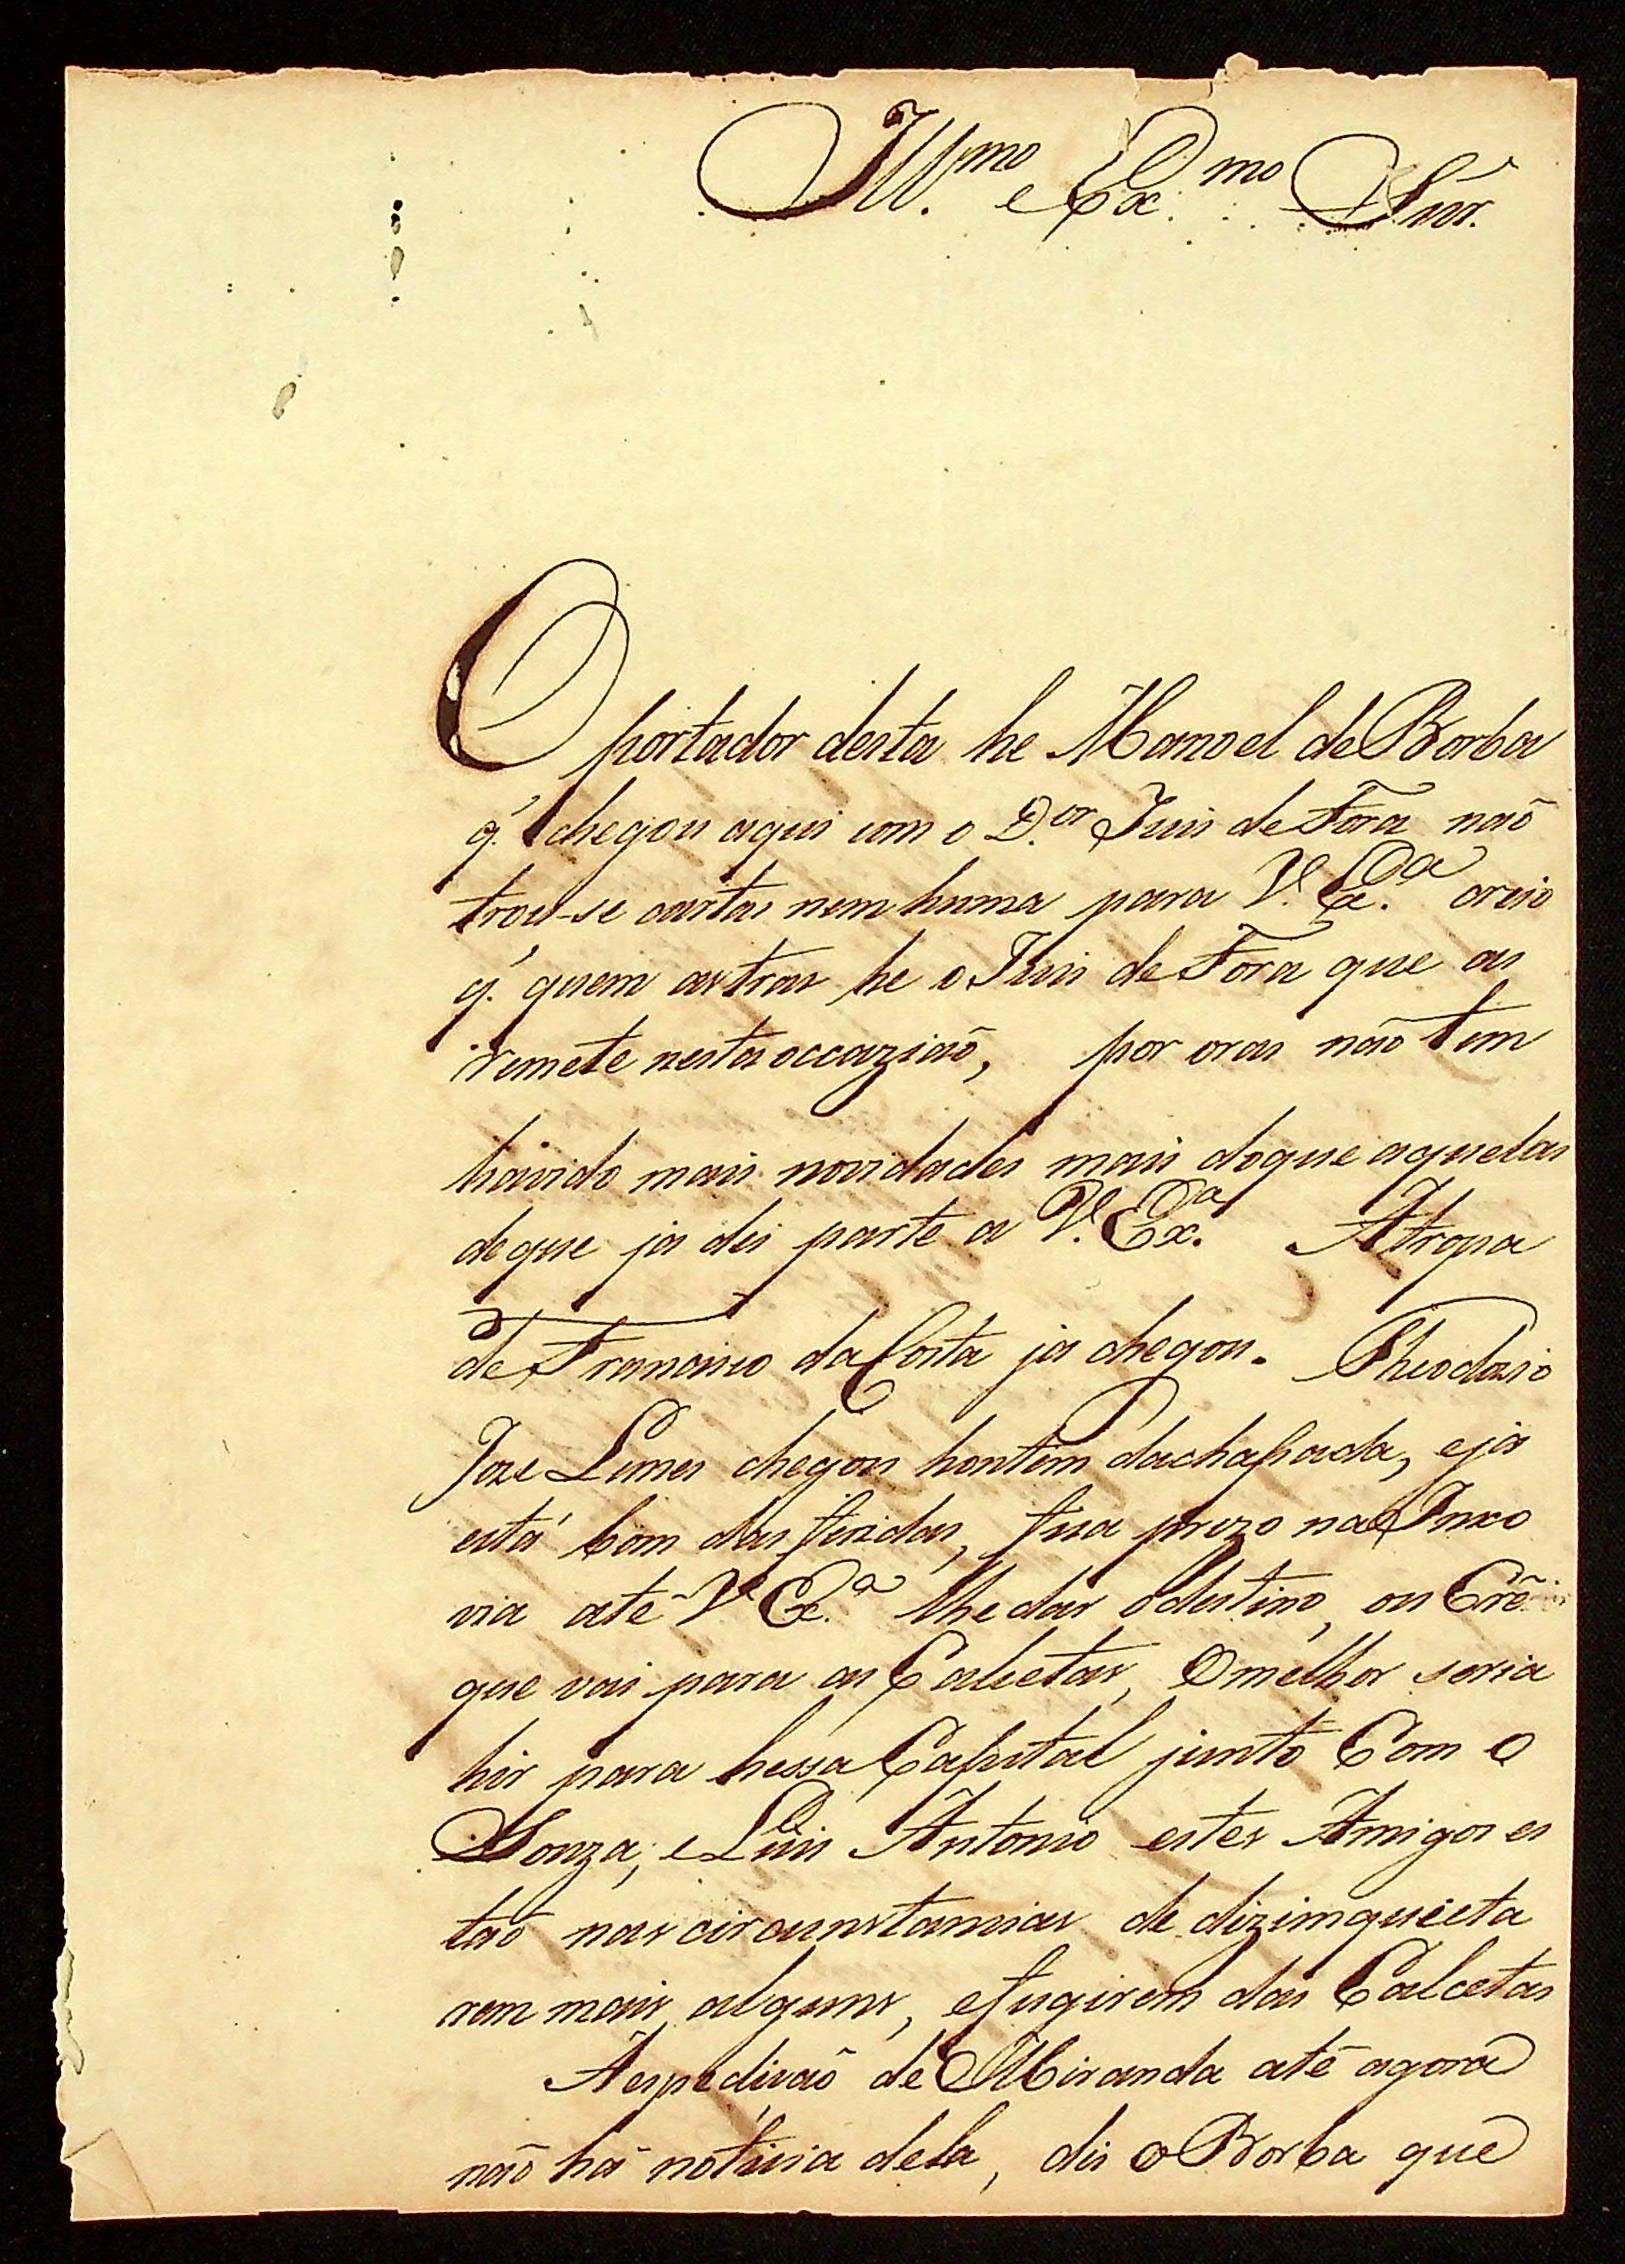 Ill.mo e Ex.mo Snr.
O portador desta he Manoel de Borba
q.' chegou aqui com o D.or Juis de Fora naõ
trou-se cartas nem huma para V. Ex.a creio
q.' quem as tras he o Juis de Fora que as
remete nesta occaziaõ, por oras naõ tem
havido mais novidades mais do que aquelas
de que ja dei parte a V. Ex.a A tropa
de Francisco da Costa ja chegou. Theodozio
Joze Lemes chegou hontem da chapada, e ja
está bom das feridas, fica prezo na Inxo
via até V. Ex.a lhe dar o destino, ou Crê
que vai para as Calcetas, O melhor seria
hir para hessa Capital junto Com o
Souza, e Luis Antonio estes Amigos es
taõ nas circunstancias de dizinquieta
rem mais alguns, e fugirem das Calcetas
A espediçaõ de Miranda até agora
naõ há noticia dela, dis o Borba que